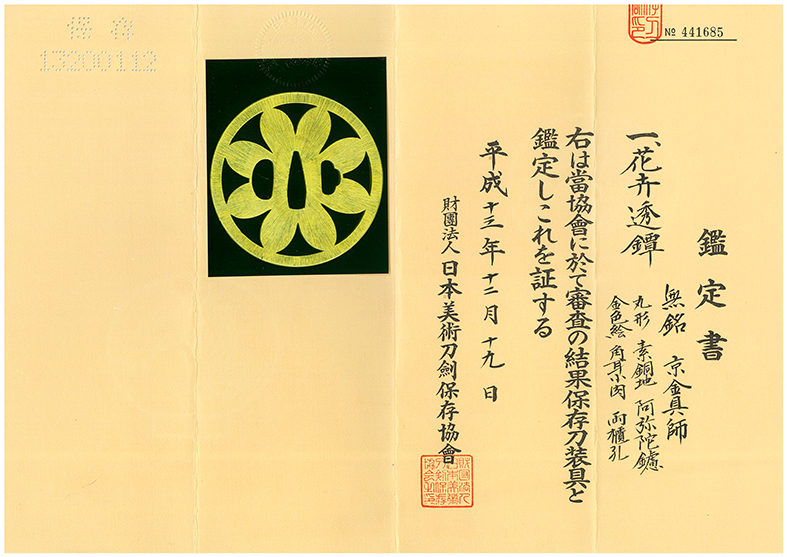 № 441685
鑑定書
一、花卉透鐔
無銘 京金具師
丸形 素銅地 阿弥陀鑢
金色絵 角耳小肉 両櫃孔
右は當協會に於て審査の結果保存刀装具と
鑑定しこれを証する
平成十三年十二月十九日
財團法人日本美術刀劍保存協會
保存
13200112